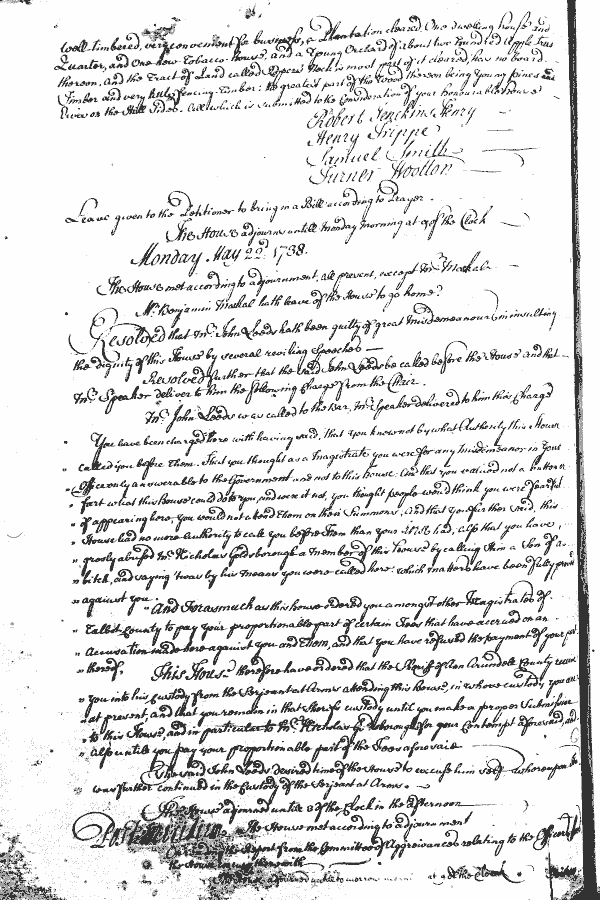 well timbered, very convenient for business, a Plantation cleared One dwelling house and
Quarter, and One new Tobacco House, and a Young Orchard of about two hundred Apple Trees
thereon, and the Tract of Land called Neck is most part of it cleared, has no board
Timber and very little fencing Timber: the greatest part of the Wood thereon being young pines and
on the Hill Sides. All which is submitted to the Consideration of your honourable house
Robert Jenckins Henry
Henry Trippe
Samuel Smith
Turner Wootton
Leave given to the Petitioner to bring in a Bill according to Prayer.
The House adjourns untill Monday morning at 9 of the Clock
Monday May 22d. 1738.
The House met according to adjournment, all present, except Mr. Mackal
Mr. Benjamin Mackal hath leave of the House to go home.
Resolved that Mr. John Leeds hath been guilty of great misdemeanour in insulting
the dignity of this House by several reviling Speeches
Resolved further that the said John Leeds be called before the House and that
Mr. Speaker deliver to him the following Charge from the Chair.
Mr. John Leeds was called to the Bar, Mr. Speaker delivered to him this Charge
You have been charged here with having said, that you knew not by what Authority this House
" called you before Them. That you thought as a Magistrate you were for any misdemeanor in your
" Office only answerable to the Government and not to this house: And that you valued not a
" fart what this House could do to you, and were it not, you thought people would think you were fearful
" of appearing here, you would not attend Them on their Summons, And that you further said, this
" House had no more Authority to call you before Them than your had, also that you have
" grosly abused Mr. Nicholas Goldsborough a Member of this House by calling Him a Son of a
" bitch, and saying 'twas by his means you were called here: which matters have been fully proved
" against you. " And Forasmuch as this house ordered you amongst other Magistrates of
" Talbot County to pay your proportionable part of certain Fees that have accrued on an
" Accusation made here against you and Them, and that you have refused the payment of your part
" thereof, This House therefore have ordered that the Sheriff of Ann Arundele County receive
" you into his custody from the Serjeant at Arms attending this House, in whose custody you are
" at present, and that you remain in that Sherifs custody untill you make a proper Submission
" to this House, and in particular to Mr. Nicholas Goldsborough for your Contempt aforesaid, and
" also untill you pay your proportionable part of the Fees aforesaid
The said John Leeds desired time of the House to excuse him self whereupon he
was further continued in the Custody of the Serjeant at Arms.
The House adjourned untill 3 of the Clock in the afternoon
Post Meridiem. The House met according to adjournment
the Report from the Committee of Aggrievances relating to the
the House
adjourned untill to morrow morning at 9 of the Clock